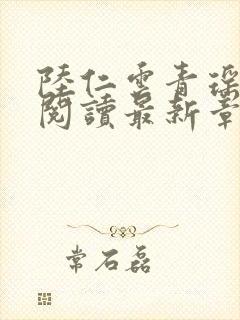 陸仁雲青瑤
閱讀最新章
常石磊